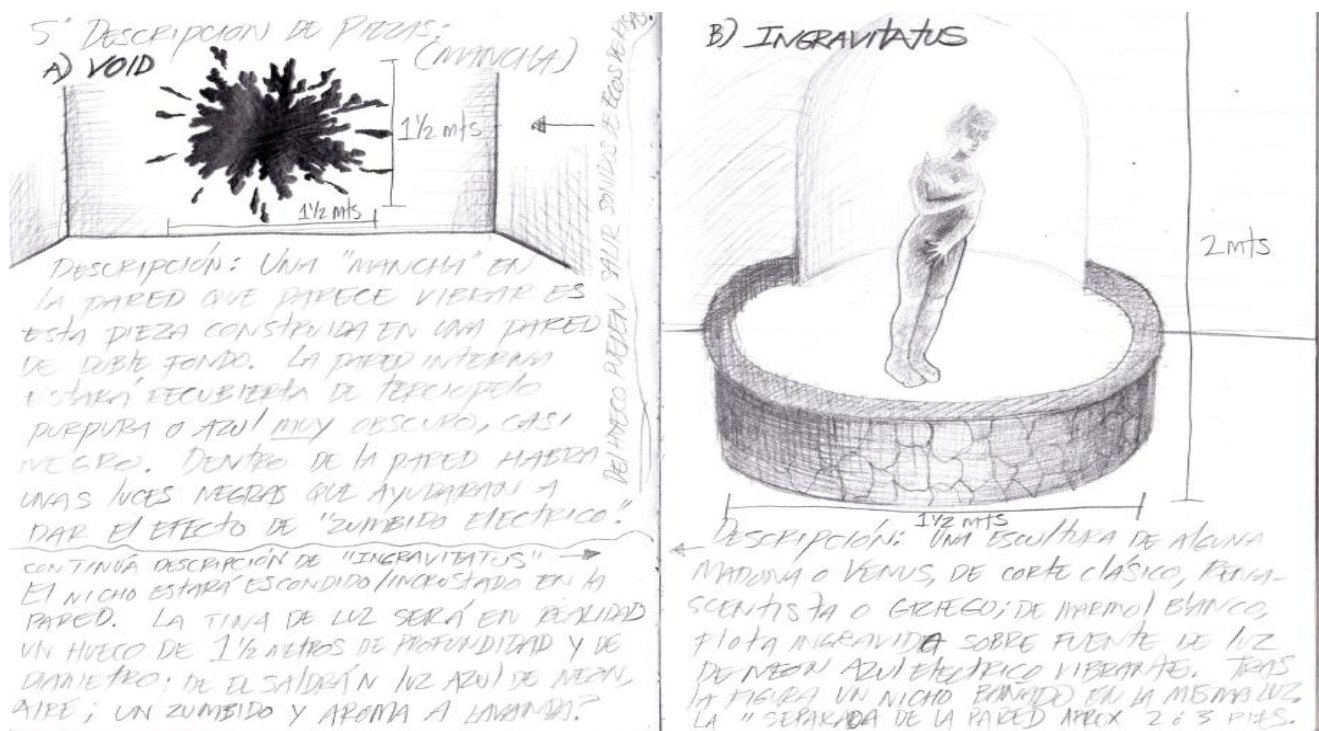 5° DESCRIPCIÓN DE PIEZAS:
A) VOID (MANCHA)
1½ mts
1½ mts
DESCRIPCIÓN: UNA "MANCHA" EN
LA PARED QUE PARECE VIBRAR ES
ESTA PIEZA CONSTRUIDA EN UNA PARED
DE DOBLE FONDO. LA PARED INTERNA
ESTARÁ RECUBIERTA DE TERCIOPELO
PURPURA O AZUL MUY OBSCURO, CASI
NEGRO. DENTRO DE LA PARED HABRA
UNAS LUCES NEGRAS QUE AYUDARAN A
DAR El EFECTO DE "ZUMBIDO ELECTRICO".
DEL HUECO PUEDEN SALIR SONIDOS DE ECOS DE
CONTINÚA DESCRIPCIÓN DE "INGRAVITATUS"
El NICHO ESTARÁ ESCONDIDO/INCRUSTADO EN LA
PARED. LA TINA DE LUZ SERÁ EN REALIDAD
UN HUECO DE 1½ METROS DE PROFUNDIDAD Y DE
DIAMETRO; DE EL SALDRÁN LUZ AZUL DE NEON,
AIRE; UN ZUMBIDO Y AROMA A LAVANDA?
B) INGRAVITATUS
2 mts
1½ mts
DESCRIPCIÓN: UNA ESCULTURA DE ALGUNA
MADONA O VENUS, DE CORTE CLÁSICO, RENA-
SCENTISTA O GRIEGO; DE MARMOL BLANCO,
FLOTA INGRAVIDA SOBRE FUENTE DE LUZ
DE NEON AZUL ELECTRICO VIBRANTE. TRAS
LA FIGURA UN NICHO BAÑADO EN LA MISMA LUZ.
LA " SEPARADA DE LA PARED APROX 2 ó 3 PIES.